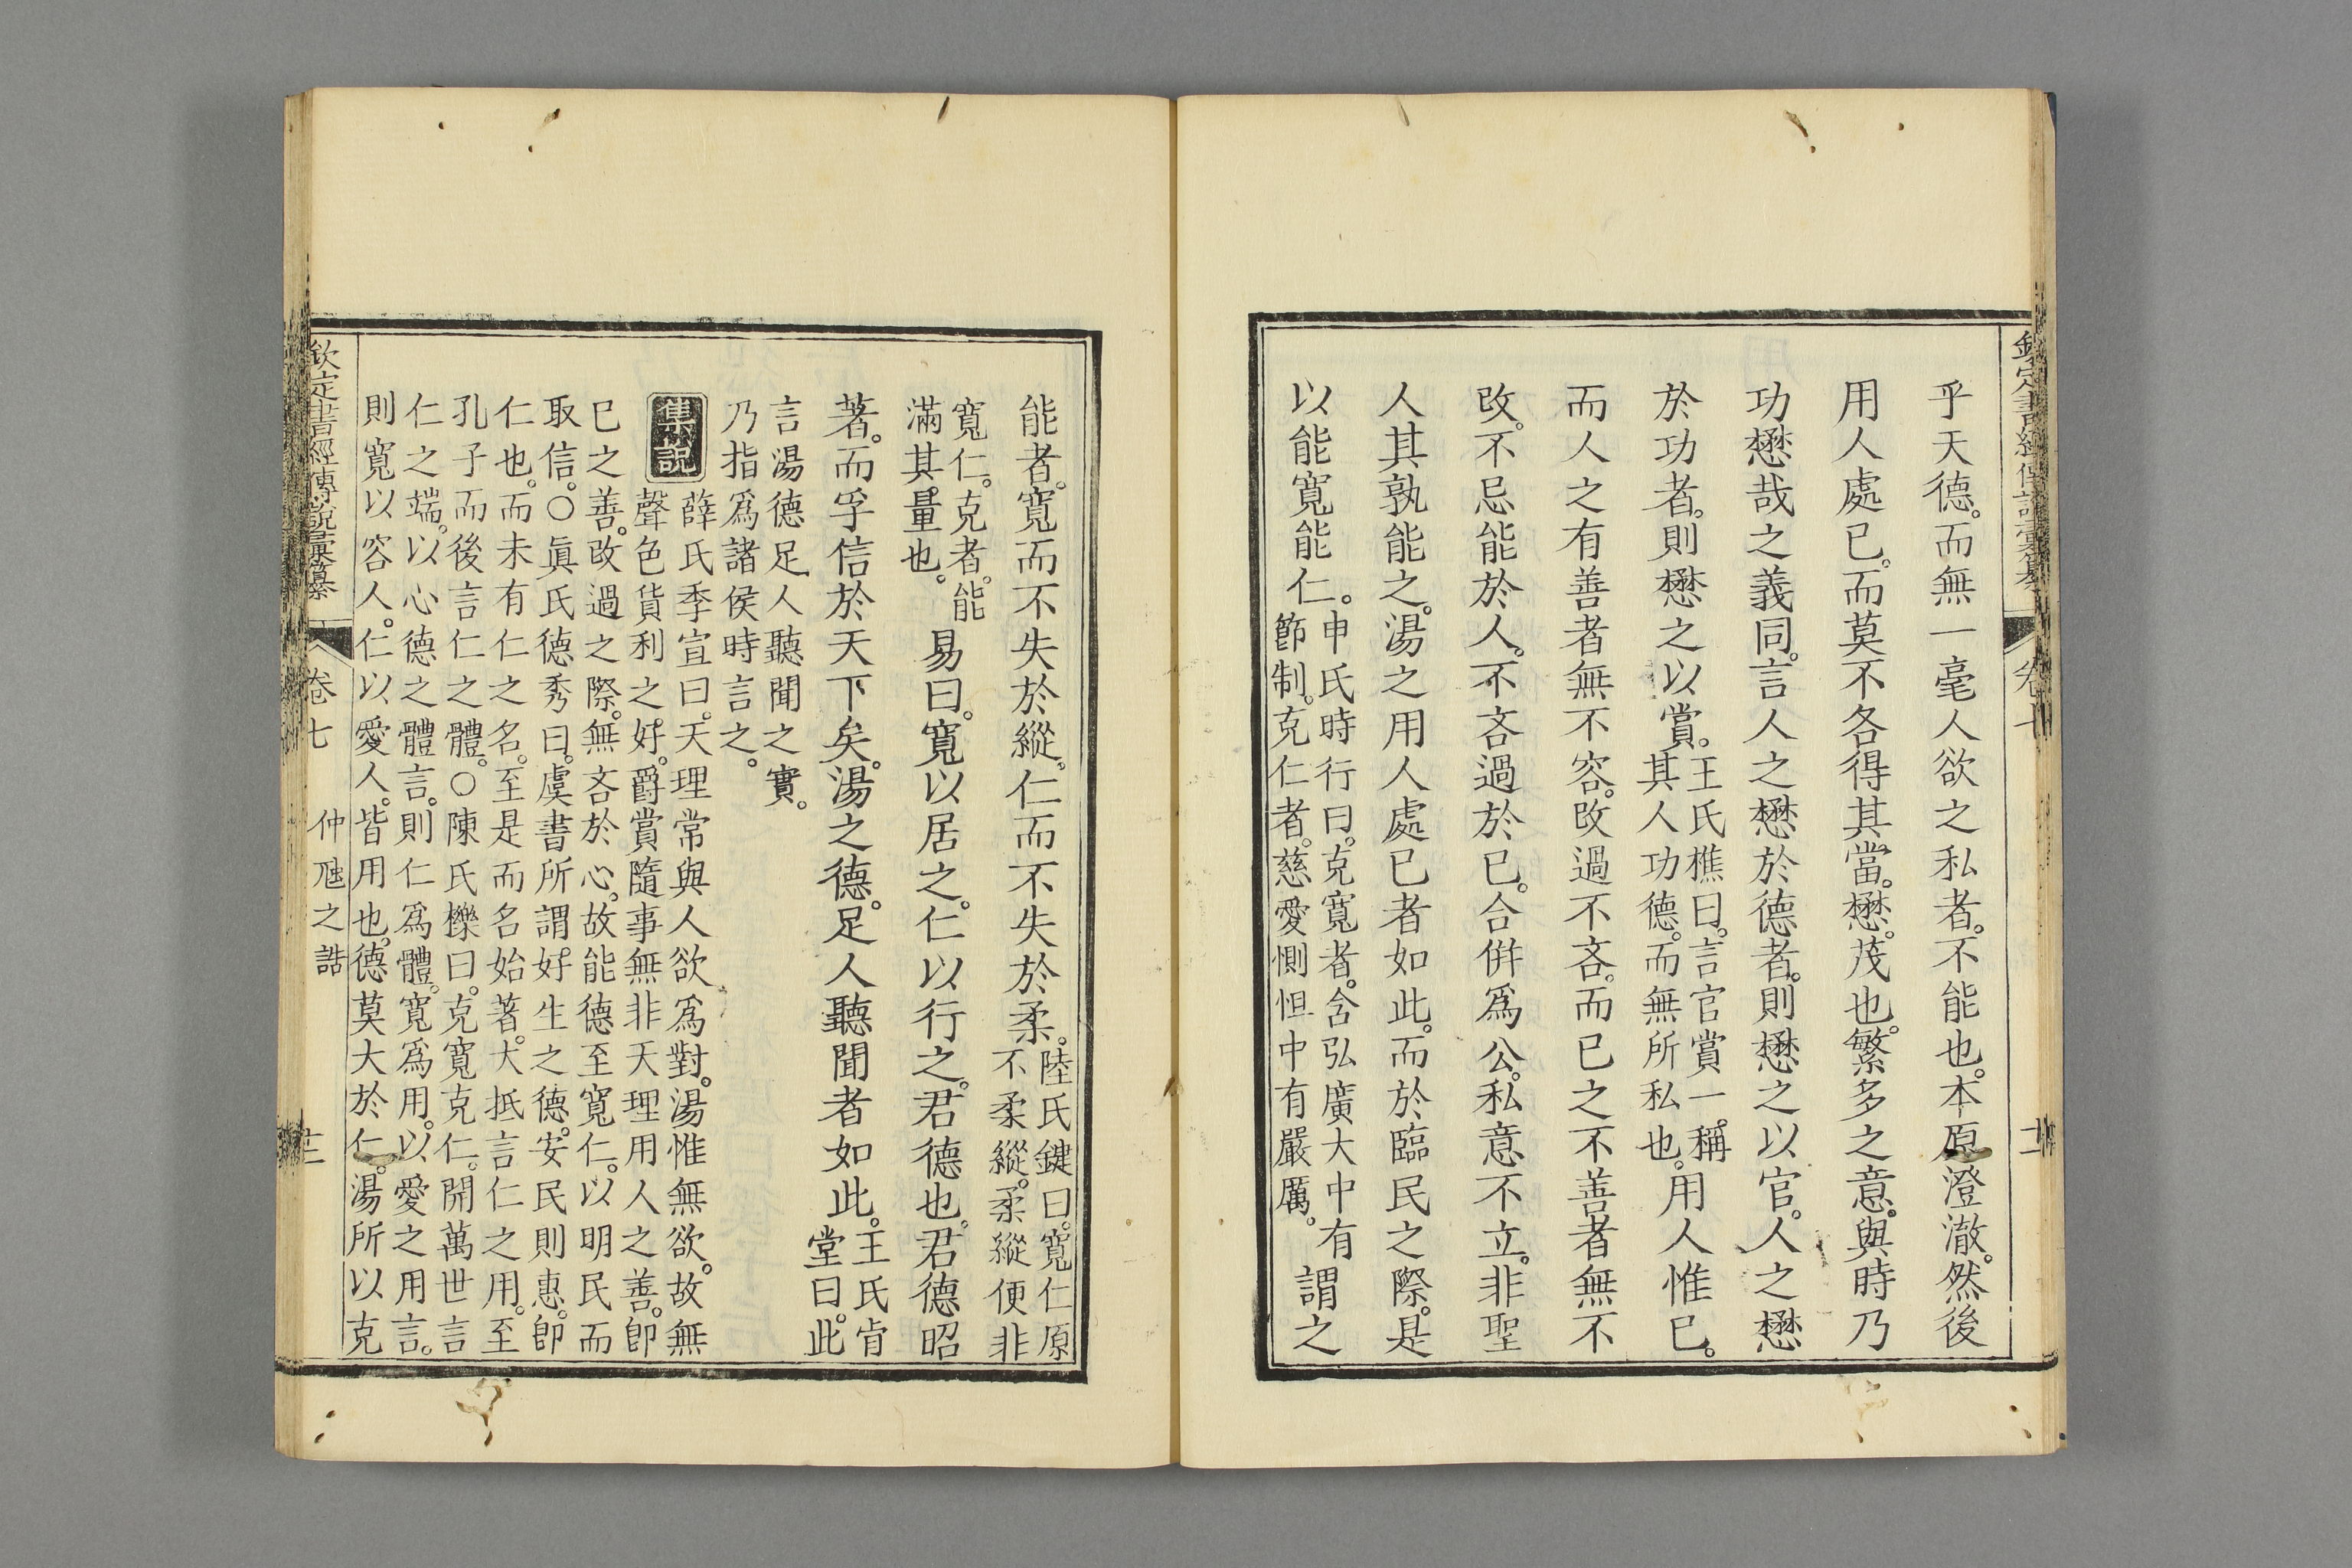 乎天德。而無一毫人欲之私者。不能也。本原澄澈。然後
用人處已。而莫不各得其當。懋。茂也。繁多之意。與時乃
功懋哉之義同。言人之懋於德者。則懋之以官。人之懋
於功者。則懋之以賞。王氏樵曰。言官賞一。稱其人功德。而無所私也。用人惟已。
而人之有善者無不容。改過不吝。而已之不善者無不
改。不忌能於人。不吝過於已。合併爲公。私意不立。非聖
人其孰能之。湯之用人處已者如此。而於臨民之際。是
以能寬能仁。申氏時行曰。克寬者。含弘廣大中有節制。克仁者。慈愛惻怛中有嚴厲。謂之
欽定書經傳說彙纂 卷七
能者。寬而不失於縱。仁而不失於柔。陸氏鍵曰。寬仁原不柔縱。柔縱便非
寬仁。克者。能滿其量也。易曰。寬以居之。仁以行之。君德也。君德昭
著。而孚信於天下矣。湯之德。足人聽聞者如此。王氏肯堂曰。此
言湯德足人聽聞之實。
乃指爲諸侯時言之。
集說
薛氏季宣曰。天理常與人欲爲對。湯惟無欲。故無
聲色貨利之好。爵賞隨事無非天理用人之善。卽
已之善。改過之際。無吝於心。故能德至寬仁。以明民而
取信。○眞氏德秀曰。虞書所謂。好生之德。安民則惠。卽
仁也。而未有仁之名。至是而名始著。大抵言仁之用。至
孔子而後言仁之體。○陳氏櫟曰。克寬克仁。開萬世言
仁之端。以心德之體言。則仁爲體。寬爲用。以愛之用言。
則寬以容人。仁以愛人。皆用也。德莫大於仁。湯所以克
欽定書經傳說彙纂 卷七 仲虺之誥